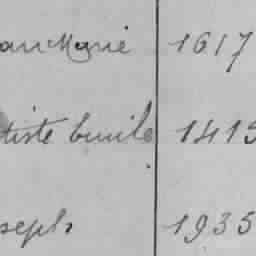 an Marie 1617
tiste Emile 1415
seph 1935